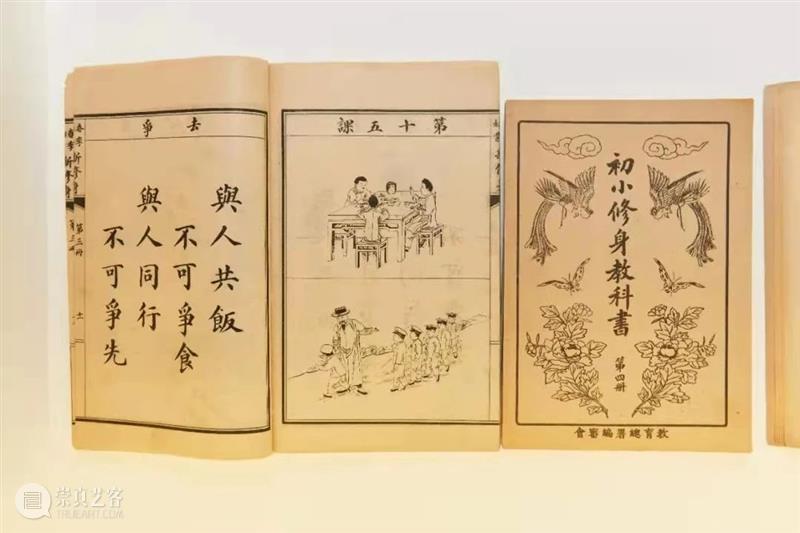 第十五課
去爭
與人共飯
不可爭食
與人同行
不可爭先
第三冊
初小修身教科書
第四冊
教育總署編審會
崇真艺客
TRUEART.COM